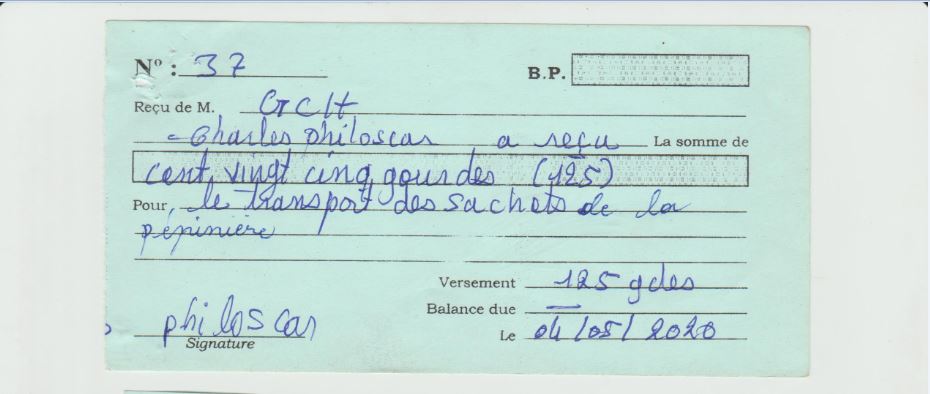 Nº : 37
B.P.
Reçu de M. GCH
- Charles philoscar a reçu La somme de
cent vingt cinq gourdes (125)
Pour, le transport des sachets de la
pépinière
Versement 125 gdes
Balance due —
philoscar
Signature
Le 04/05/2020